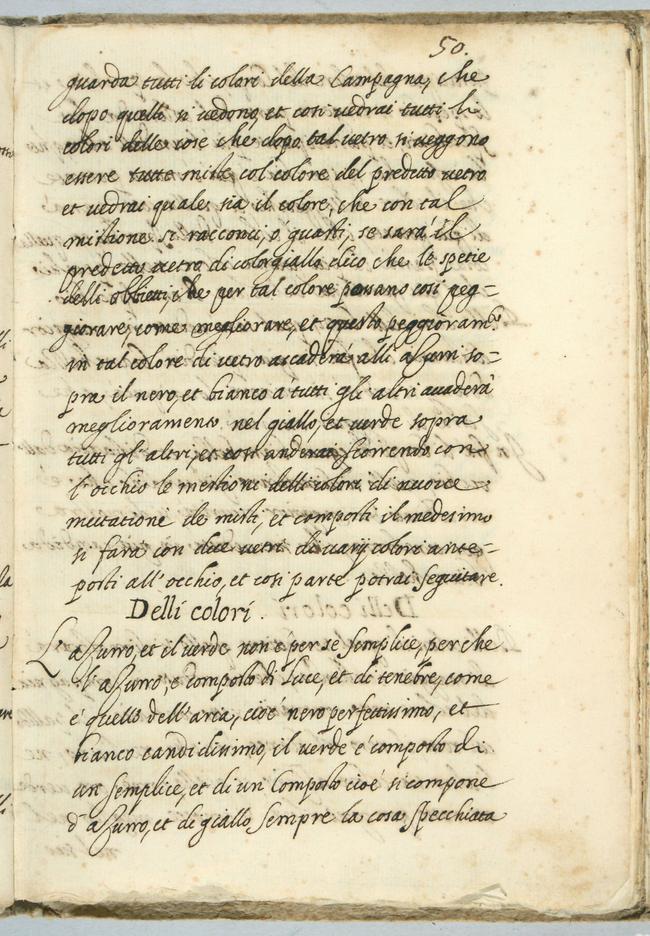 50.
guarda tutti li colori della Campagna, che
dopo quelli si vedono et così vedrai tutti li
colori delle cose che dopo tal vetro si veggono
essere tutte miste col colore del predetto vetro
et vedrai quale sia il colore, che con tal
mistione si racconci, ò guasti, se sarà il
predetto vetro di color giallo dico che le spetie
delli obbietti, che per tal colore possano così peg=
giorare, come megliorare, et questo peggioram.to
in tal colore di vetro accaderà alli azurri so=
pra il nero, et bianco à tutti gli altri
meglioramento nel giallo, et verde sopra
tutti gl'altri, et così anderai scorrendo con
l'occhio le mestioni delli colori di nuove
mutatione de misti, et composti il medesimo
si farà con due vetri di varij colori ante=
posti all'occhio, et così parte potrai seguitare.
Delli colori.
L'azurro, et il verde non è per sè semplice, perche
l'azurro, è composto di luce, et di tenebre, come
è quello dell'aria, cioè nero perfettissimo, et
bianco candidissimo, il verde è composto di
un semplice, et di un Composto cioè si compone
d'azurro, et di giallo sempre la cosa specchiata